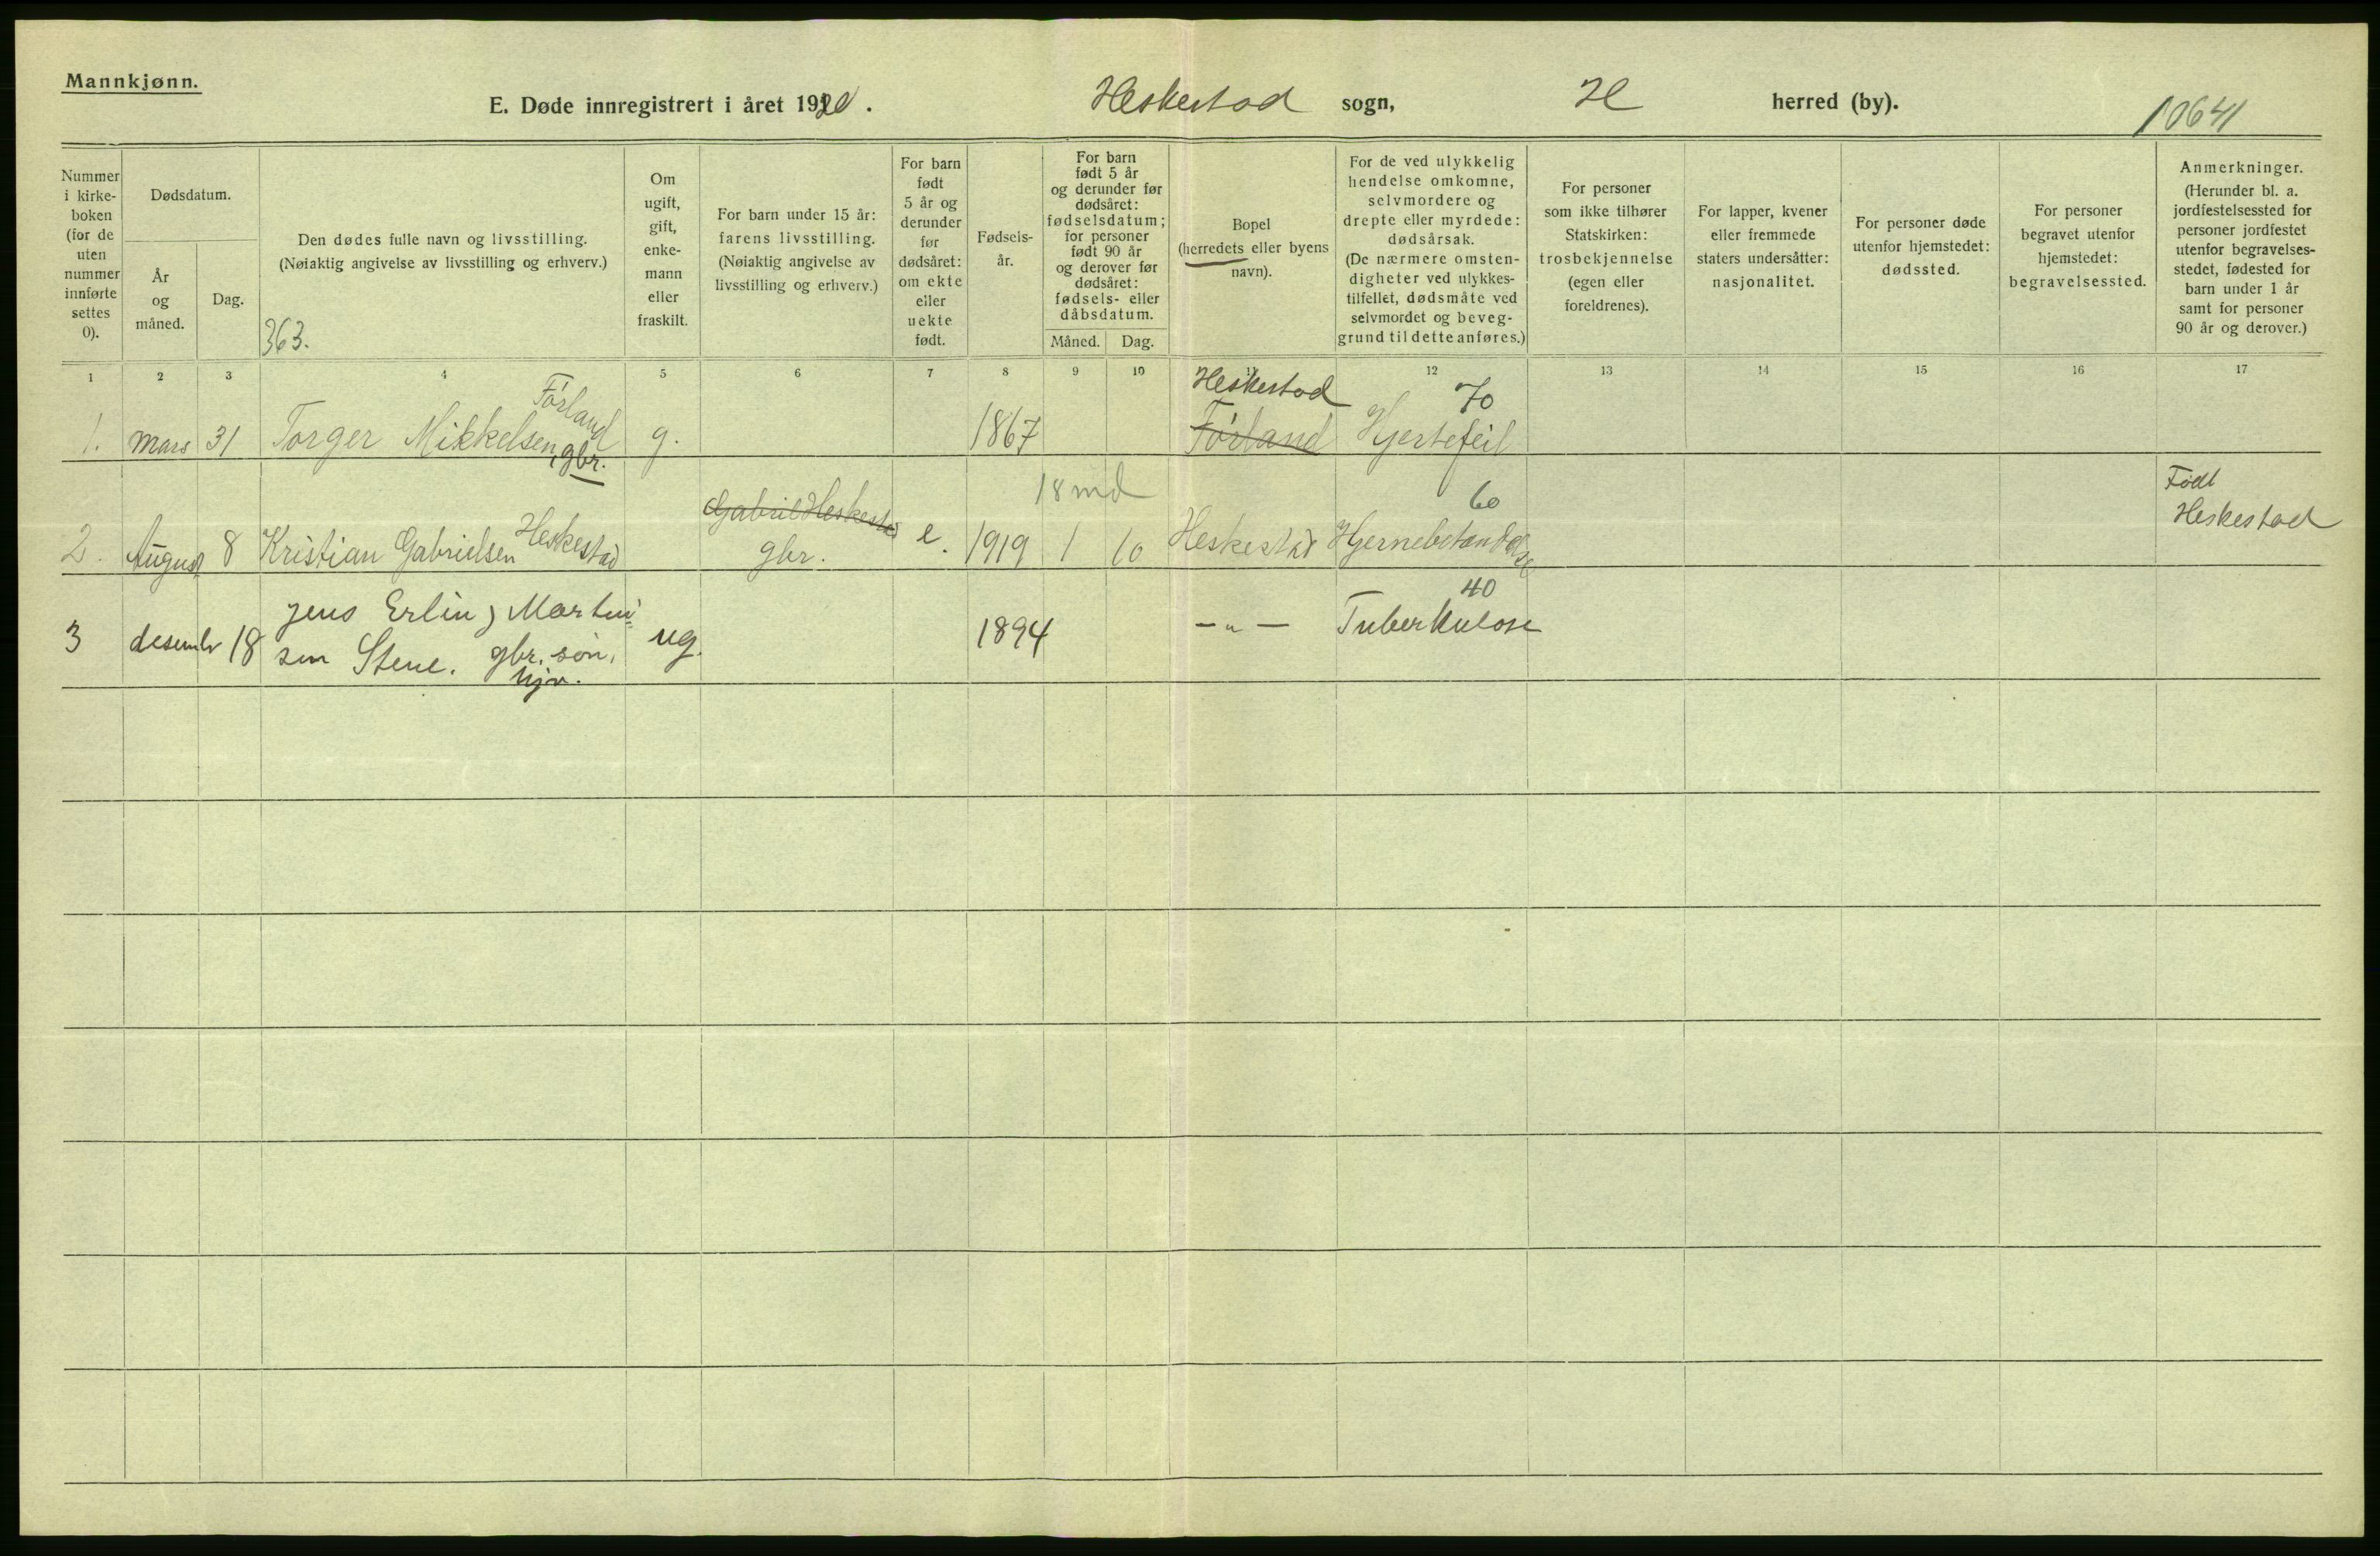 Mannkjønn.
E. Døde innregistrert i året 1920. Heskestad sogn, H herred (by).
10641
Nummer i kirke-boken (for de uten nummer innførte settes 0).
Dødsdatum.
År og måned.
Dag.
Den dødes fulle navn og livsstilling.
(Nøiaktig angivelse av livsstilling og erhverv.)
363.
Om ugift, gift, enke-mann eller fraskilt.
For barn under 15 år: farens livsstilling. (Nøiaktig angivelse av livsstilling og erhverv.)
For barn født 5 år og derunder før dødsåret: om ekte eller uekte født.
Fødsels-år.
For barn født 5 år og derunder før dødsåret: fødselsdatum; for personer født 90 år og derover før dødsåret: fødsels- eller dåbsdatum.
Måned. Dag.
Bopel (herredets eller byens navn).
For de ved ulykkelig hendelse omkomne, selvmordere og drepte eller myrdede: dødsårsak. (De nærmere omsten-digheter ved ulykkes-tilfellet, dødsmåte ved selvmordet og beveg-grund til dette anføres.)
For personer som ikke tilhører Statskirken: trosbekjennelse (egen eller foreldrenes).
For lapper, kvener eller fremmede staters undersåtter: nasjonalitet.
For personer døde utenfor hjemstedet: dødssted.
For personer begravet utenfor hjemstedet: begravelsessted.
Anmerkninger. (Herunder bl. a. jordfestelsessted for personer jordfestet utenfor begravelses-stedet, fødested for barn under 1 år samt for personer 90 år og derover.)
1 2 3 4 5 6 7 8 9 10 11 12 13 14 15 16 17
Førland Heskestad 70
1. Mars 31 Torger Mikkelsen, gbr. g. 1867 Førland Hjertefeil
Gabriel Heskestad 18 md 60 Født
2. August 8 Kristian Gabrielsen Heskestad gbr. e. 1919 1 10 Heskestad Hjernebetendelse Heskestad
40
3 desembr 18 Jens Erling Martin sen Stene. gbr. søn, ug. 1894 — " — Tuberkulose